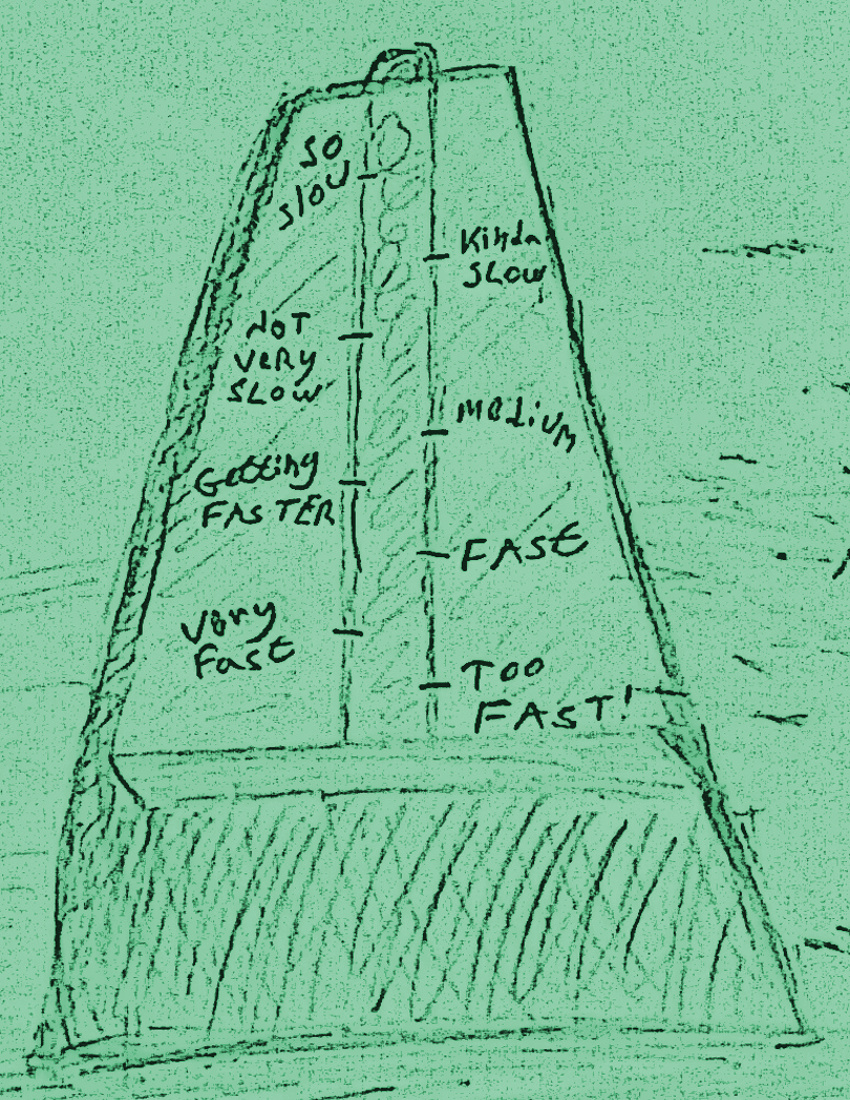 SO
SLOW
Kinda
SLOW
NOT
VERY
SLOW
MEDiUM
Getting
FASTER
FASt
Very
Fast
TOO
FAST!